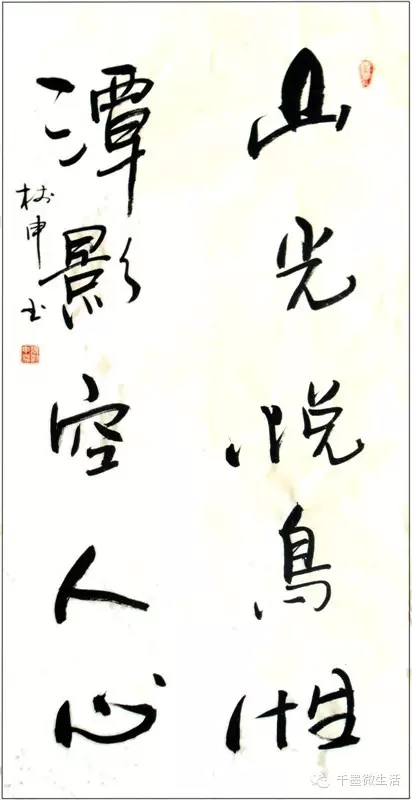 山光悦鳥性
潭影空人心
树申书
千墨微生活